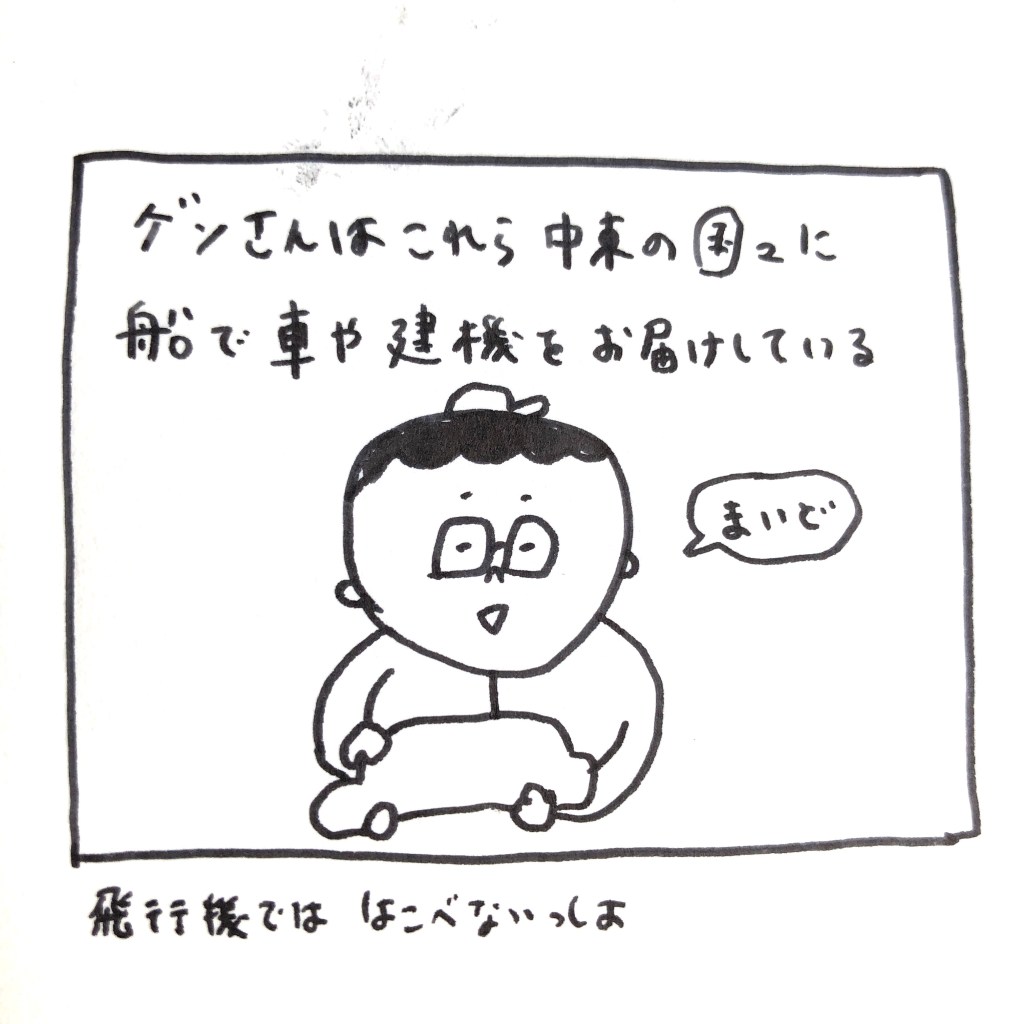 ゲンさんはこれら中東の国々に
船で車や建機をお届けしている
まいど
飛行機では はこべないっしょ